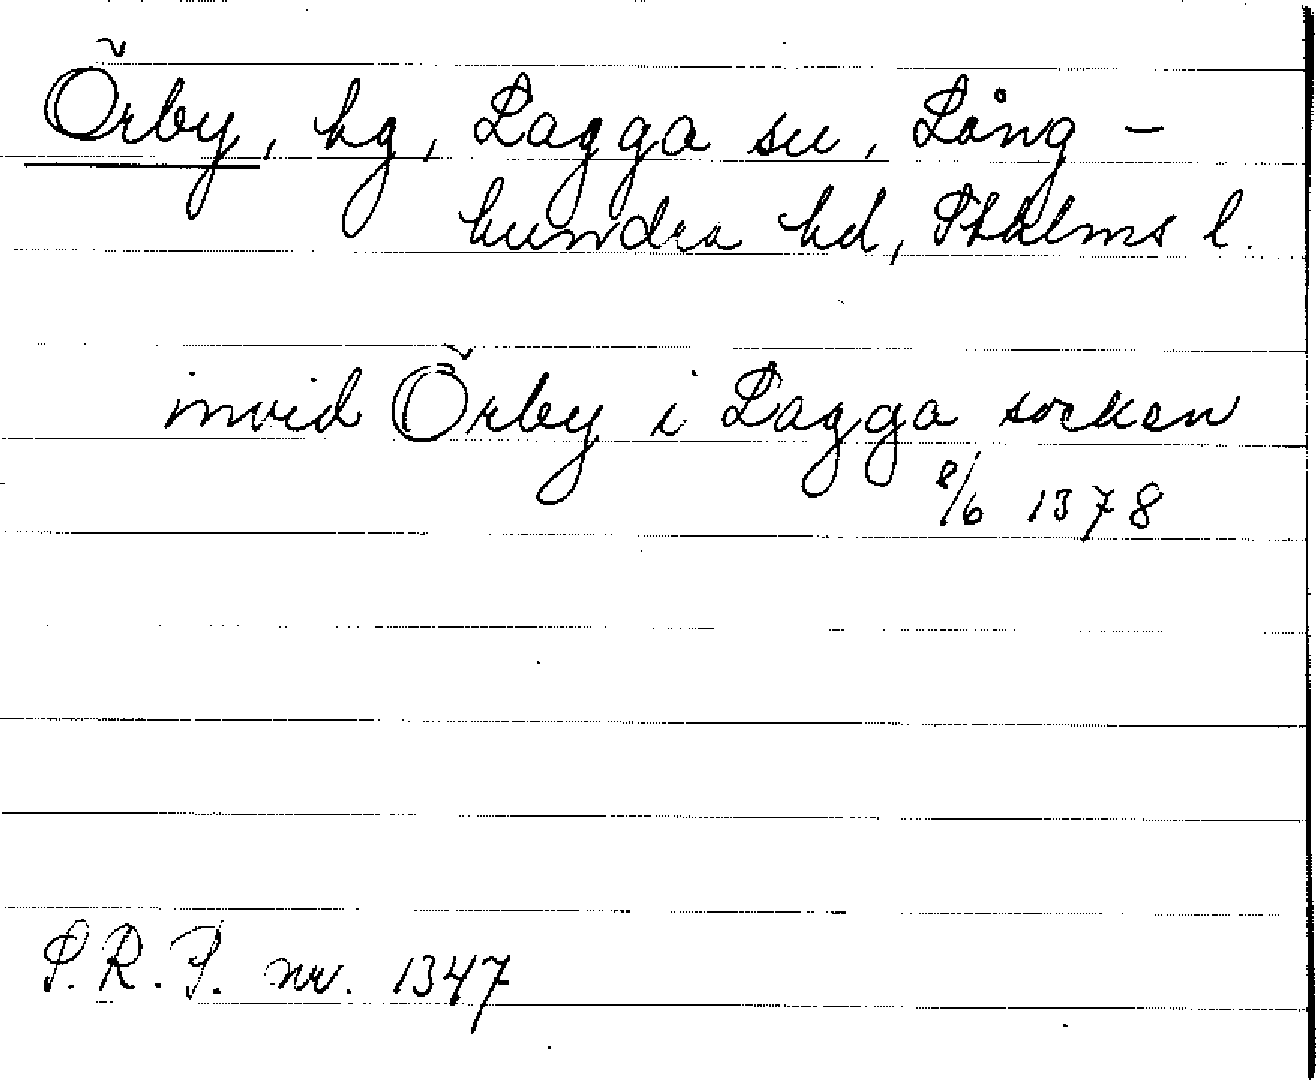 Örby, hg, Lagga sn, Lång-
hundra hd, Sthlms l.
invid Örby i Lagga socken
8/6 1378
S.R.P. nr. 1347